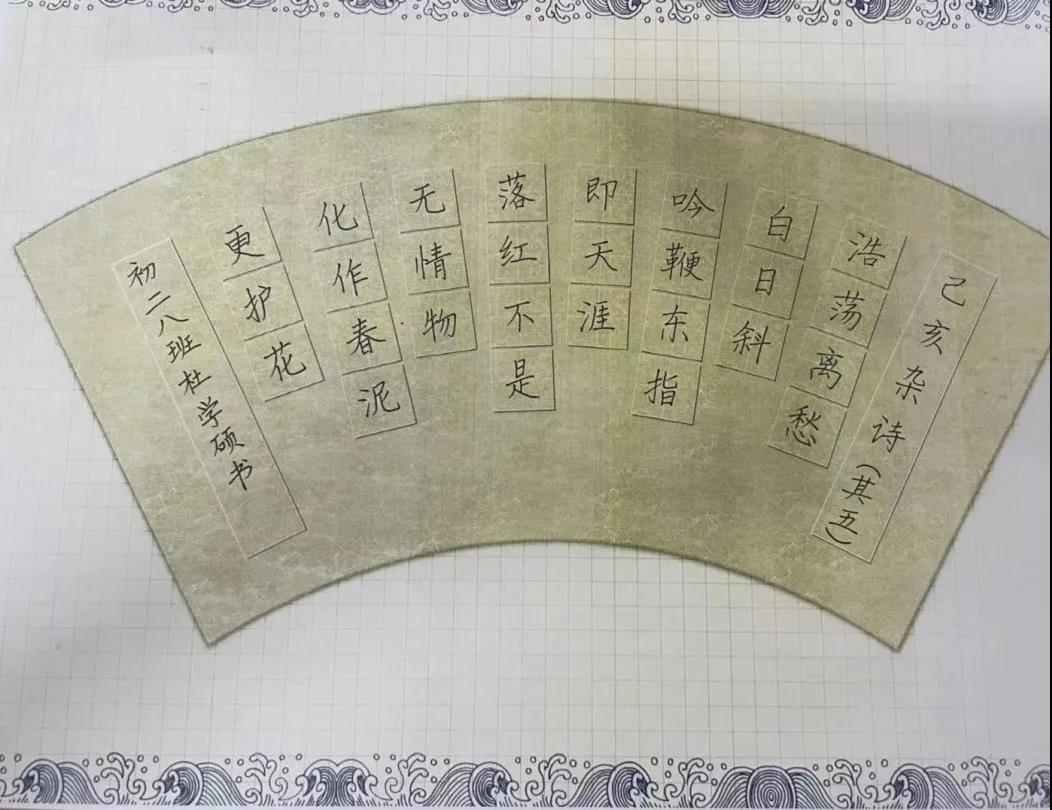 己亥杂诗(其五)
浩荡离愁
白日斜
吟鞭东指
即天涯
落红不是
无情物
化作春泥
更护花
初二八班杜学硕书